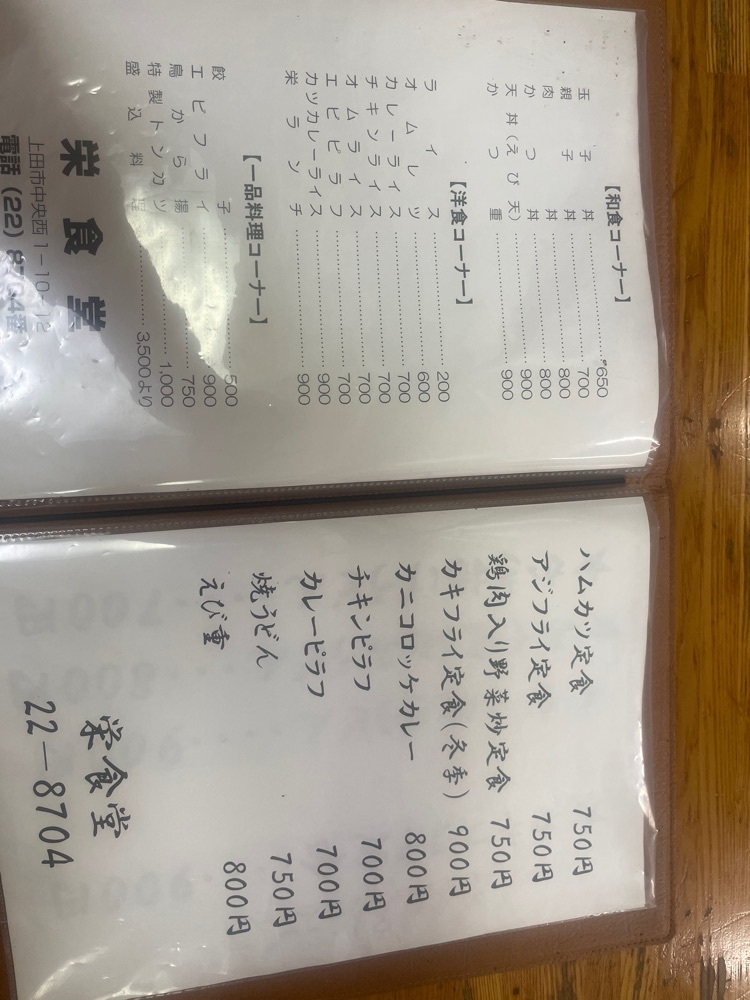 【和食コーナー】
玉子丼 ¥650
親子丼 700
肉丼 800
かつ丼 800
天丼(えび天) 900
かつ重 900
【洋食コーナー】
ライス 200
オムレツ 600
カレーライス 700
チキンライス 700
オムライス 700
エビピラフ 700
カツカレーライス 900
栄ランチ 900
【一品料理コーナー】
餃子 500
エビフライ 900
鳥から揚 750
特製トンカツ 1,000
盛込料理 3,500より
栄食堂
上田市中央西1-10-12
電話(22)8704番
ハムカツ定食 750円
アジフライ定食 750円
鶏肉入り野菜炒定食 750円
カキフライ定食(冬季) 900円
カニコロッケカレー 800円
チキンピラフ 700円
カレーピラフ 700円
焼うどん 750円
えび重 800円
栄食堂
22-8704